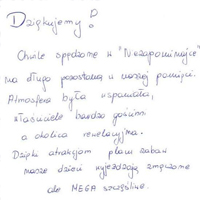 Dziękujemy!
Chwile spędzone w "Niezapominajce"
na długo pozostaną w naszej pamięci.
Atmosfera była wspaniała,
właściciele bardzo gościnni
a okolica rewelacyjna.
Dzięki atrakcjom placu zabaw
nasze dzieci wyjeżdżają zmęczone
ale MEGA szczęśliwe.